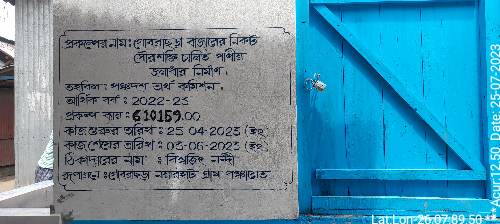 প্রকল্পের নাম: গোবরাছড়া বাজারের নিকট
সৌরশক্তি চালিত পানীয়
জলাধার নির্মাণ।
তহবিল: পঞ্চদশ অর্থ কমিশন।
আর্থিক বর্ষ: 2022-23
প্রকল্প ব্যয়: 610159.00
কাজ শুরুর তারিখ: 25-04-2023 (ইং)
কাজ শেষের তারিখ: 03-06-2023 (ইং)
ঠিকাদারের নাম: বিশ্বজিৎ নন্দী
রূপায়ণে: গোবরাছড়া নয়ারহাট গ্রাম পঞ্চায়েত
Lat Lon-26.07,89.50
***Acur:12.50 Date:25-07-2023